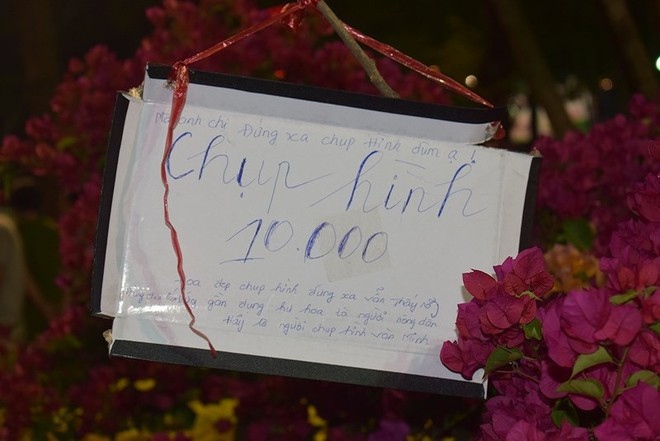 anh chị Đứng xa chụp hình dùm ạ!
Chụp hình
10.000
Hoa đẹp chụp hình đứng xa vẫn thấy rõ
gần đụng hư hoa là người nông dân
thấy là người chụp hình văn minh